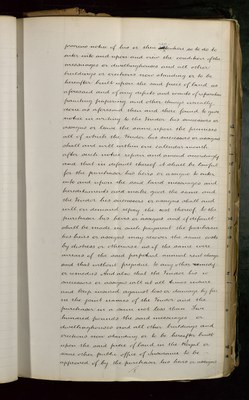 previous notice of his or their intention so to do to
enter into and upon and view the condition of the
messuages or dwellinghouses and all other
buildings or erections now standing or to be
hereafter built upon the said piece of land as
aforesaid and of any defects and wants of reparation
painting papering and other things
done as aforesaid there found to give
notice in writing to the Vendor his successors or
assigns or leave the same upon the premises
all of which the Vendor his successors or assigns
shall and will within one calendar month
after such notice repair and amend accordingly
and that in default thereof it shall be lawful
for the purchaser his heirs or assigns to enter
into and upon the said land messuages and
hereditaments and make good the same and
the Vendor his successors or assigns shall and
will on demand repay the cost thereof to the
purchaser his heirs or assigns and if default
shall be made in such payment the purchaser
his heirs or assigns may recover the same
by distress or otherwise as if the same were
arrears of the said perpetual annual rent charge
and that without prejudice to any other remedy
or remedies And also that the Vendor his
successors or assigns will at all times insure
and keep insured against loss or damage by fire
in the joint names of the Vendor and the
purchaser in a sum not less than Two
hundred pounds the said messuages or
dwellinghouses and all other buildings and
erections now standing or to be hereafter built
upon the said piece of land in the Royal or
some other public office of Insurance to be
approved of by the purchaser his heirs or assigns